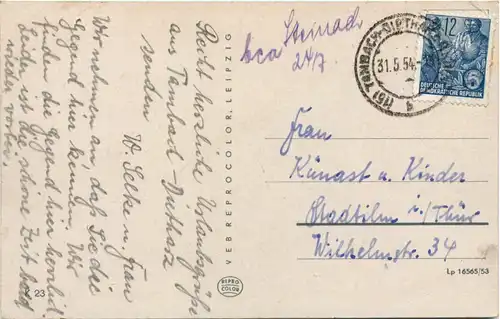 Recht herzliche Urlaubsgrüße
aus Tambach-Dietharz
senden
W. Selke u. Frau
Wir nehmen an, daß Sie die
Gegend hier kennen. Wir
finden die Gegend hier herrlich.
Leider ist die schöne Zeit bald
wieder vorbei.
23
VEB REPROCOLOR, LEIPZIG
REPRO
COLOR
Steinach
24/7
(15) TAMBACH-DIETHARZ
31.5.54
b
12
DEUTSCHE
DEMOKRATISCHE REPUBLIK
Frau
Künast u. Kinder
Stadtilm i/Thür
Wilhelmstr. 34
Lp 16565/53